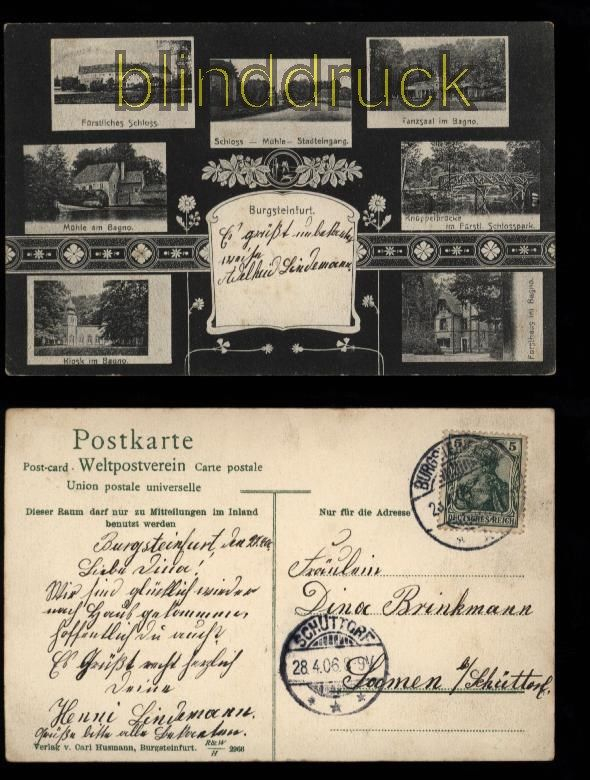 blinddruck
Fürstliches Schloss.
Schloss — Mühle — Stadteingang.
Tanzsaal im Bagno.
Mühle am Bagno.
Knüppelbrücke
im Fürstl. Schlosspark.
Burgsteinfurt.
Es grüßt unbekannter
weise
Lindemann.
Kiosk im Bagno.
Forsthaus im Bagno.
Postkarte
Post-card · Weltpostverein Carte postale
Union postale universelle
Dieser Raum darf nur zu Mitteilungen im Inland
benutzt werden
Nur für die Adresse
5 5
DEUTSCHES REICH
Burgsteinfurt, den
Liebe Dina!
Wir sind glücklich wieder
nach Haus gekommen,
hoffentlich Du auch?
Es Grüßt recht herzlich
Deine
Henni Lindemann.
Grüße bitte alle Bekannten.
Fräulein
Dina Brinkmann
b/Schüttorf.
SCHÜTTORF
28.4.06.
Verlag v. Carl Husmann, Burgsteinfurt. R&W/H 2966